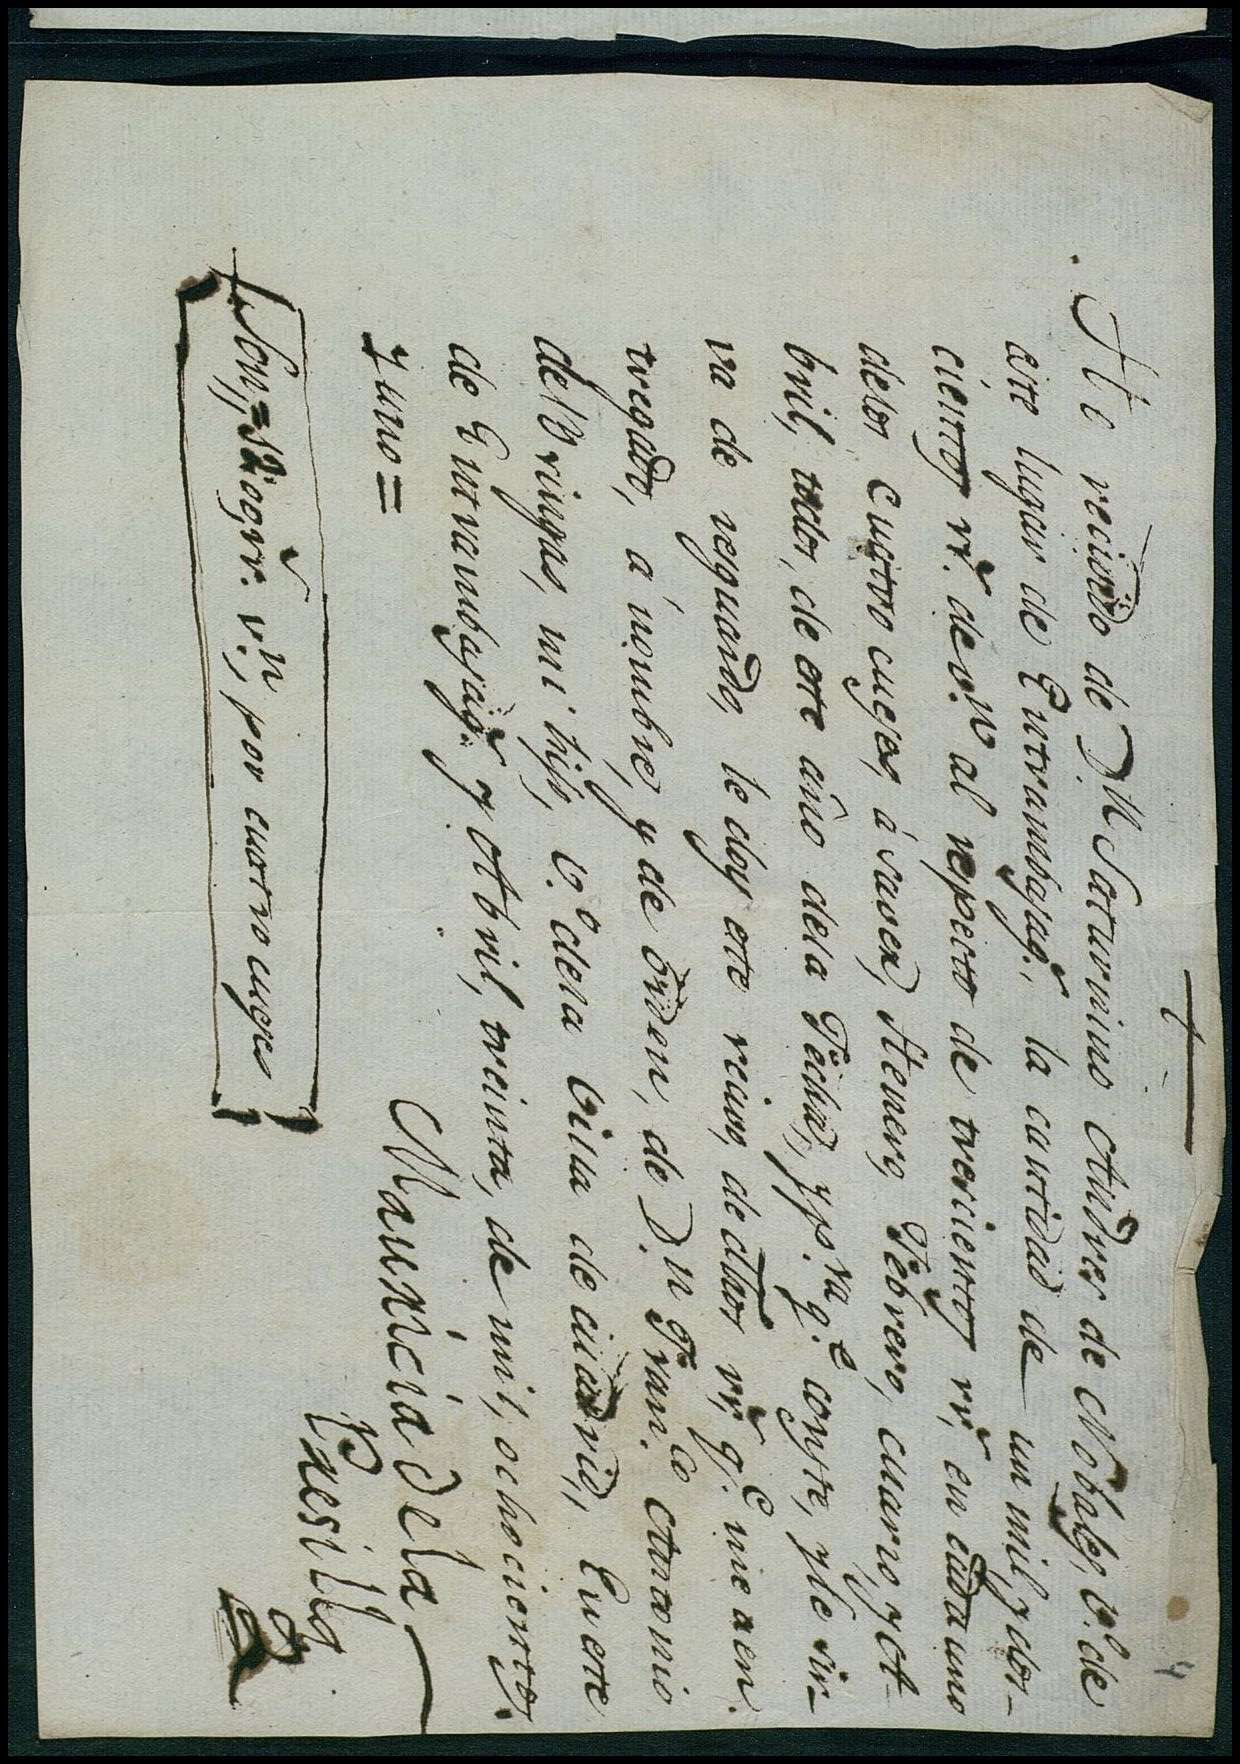 †
He recivido de D.n Saturnino Andres de Nobales, v.o de
este lugar de Entrambasag.s, la cantidad de un mil, y dos-
cientos rr.s de v.n al respecto de trescientos rr.s en cada uno
delos cuatro cuges, á saver, Henero, Febrero, Marzo, y A-
bril, todos, de este año dela Fecha, y p.a q.e conste, y le sir-
va de resguardo, le doy este recivo, de dhos rr.s q.e me a en-
tregado, á nombre, y de orden, de D.n Fran.co Antonio
de Bringas, mi hijo, v.o dela villa de Madrid, En este
de Entrambasag.s y Abril, treinta, de mil, ochocientos,
y uno =
Mauricia dela
Presilla
Son, = 1200 rr.s v.n, por cuatro cuges